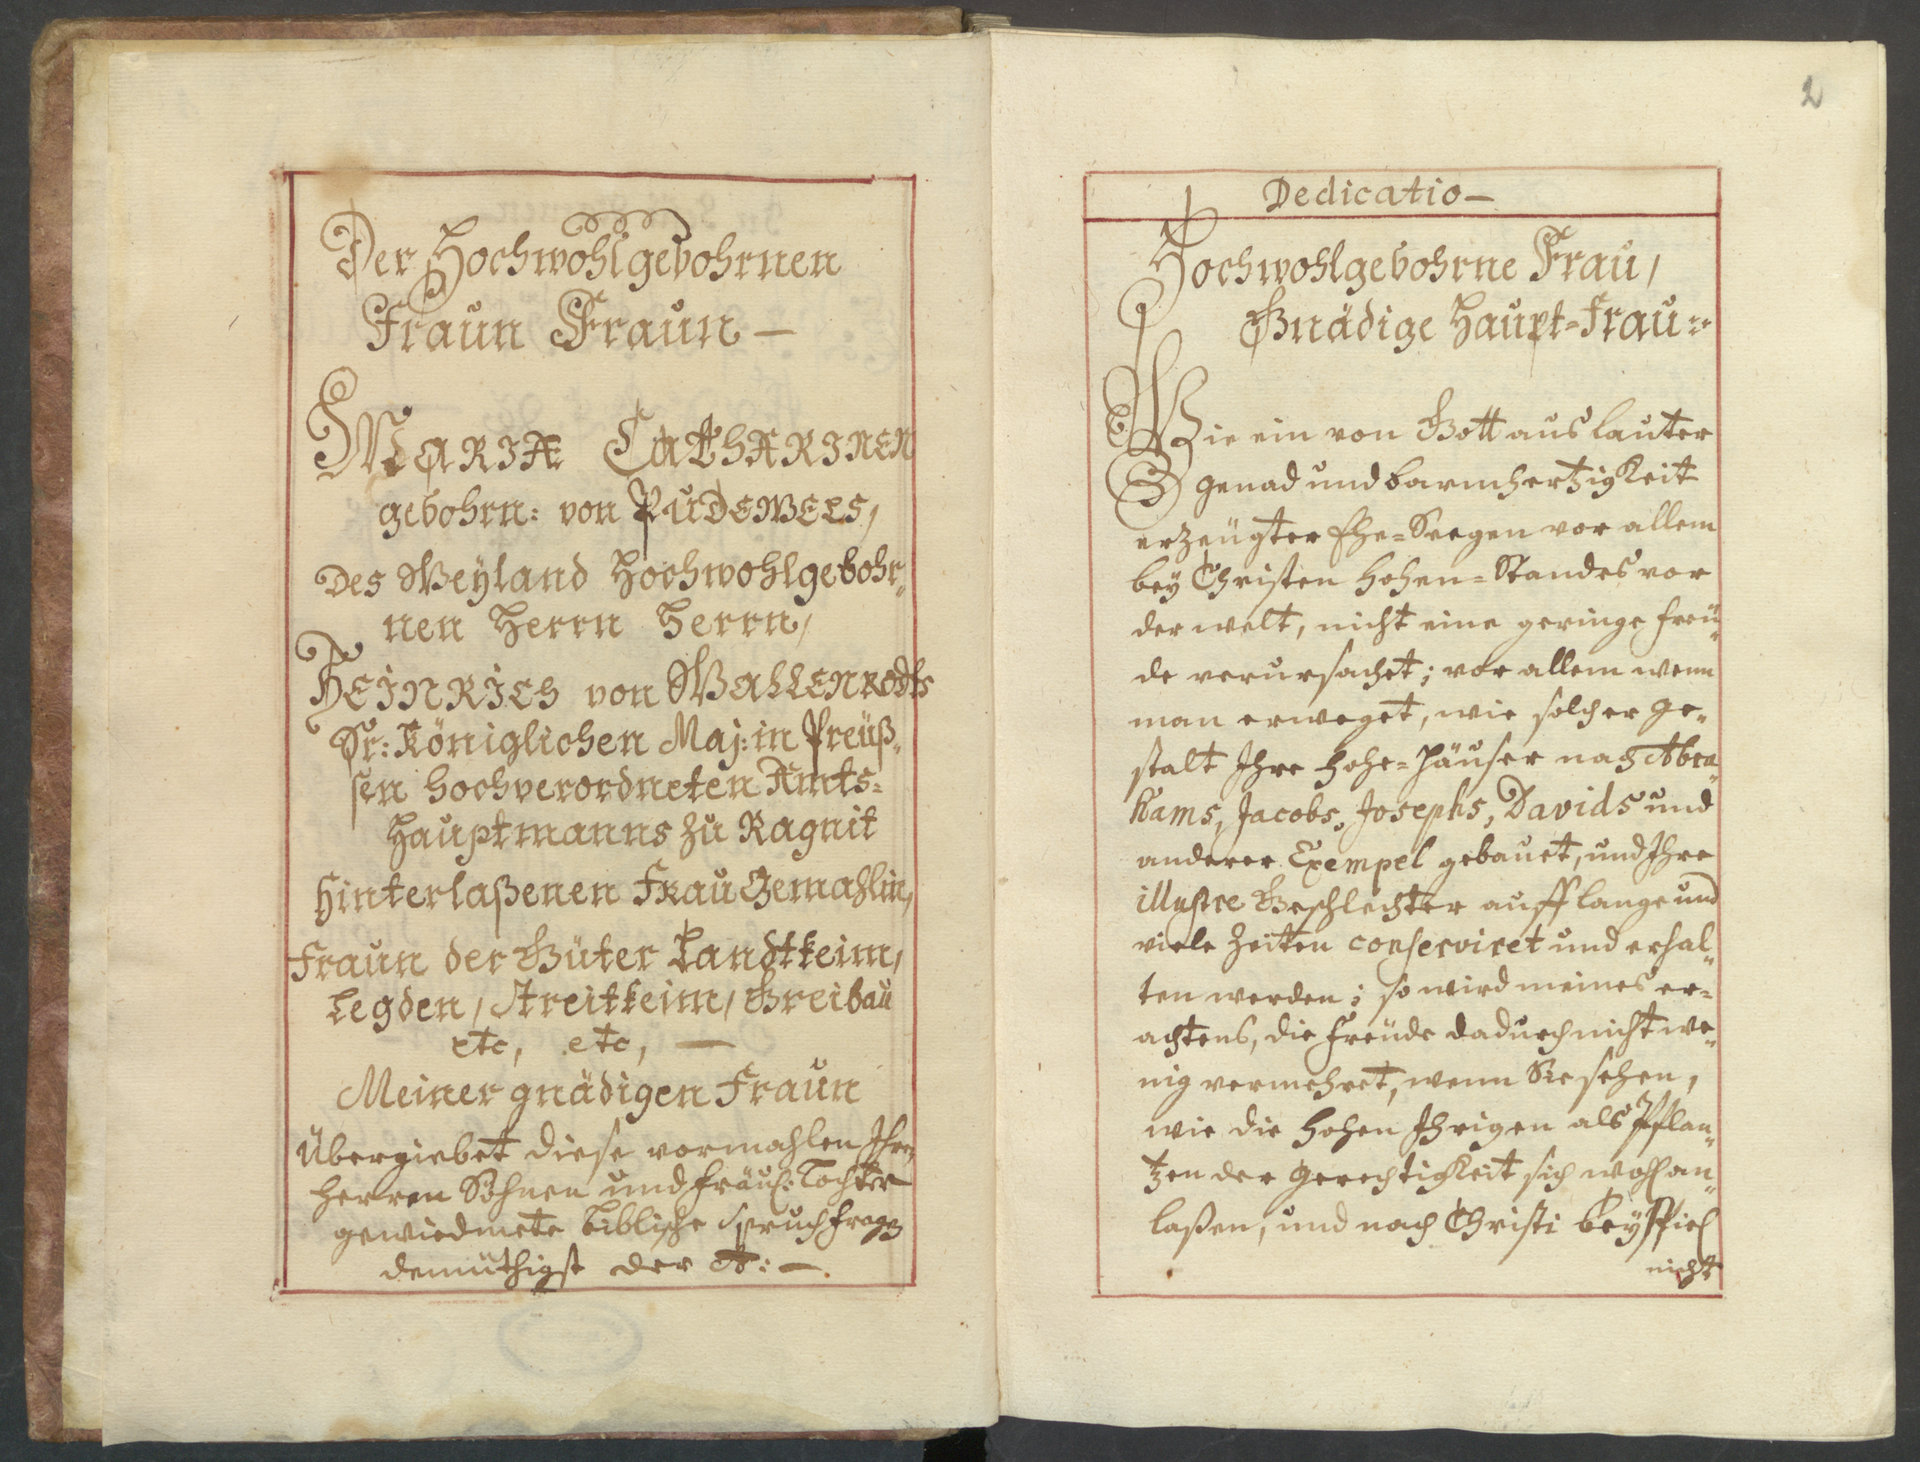 Der Hochwohlgebohrnen
Fraun Fraun —
MARIÆ CATHARINEN
gebohrn: von PUDEWELS,
Des Weyland Hochwohlgebohr-
nen Herrn Herrn,
HEINRICH von WALLENRODTS
Sr: Königlichen Maj: in Preüß-
sen hochverordneten Amts-
Hauptmanns zu Ragnit
Hinterlaßenen Frau Gemahlin,
Fraun der Güter Landtkeim,
Legden, Streitkeim, Greibau
etc, etc, —
Meiner gnädigen Fraun
Übergiebet diese vormahlen Ihren
Herren Söhnen und Fräul: Tochter
gewiedmete biblische Spruchfragen
demüthigst der A: —.
2
Dedicatio —
Hochwohlgebohrne Frau,
Gnädige Haupt-Frau
Wie ein von Gott aus lauter
genad und barmhertzigkeit
erzeügter Ehe-Seegen vor allem
bey Christen hohen-Standes vor
der welt, nicht eine geringe freü-
de verursachet; vor allem wenn
man erweget, wie solcher ge-
stalt Ihre hohe-Häuser nach Abra-
hams, Jacobs, Josephs, Davids und
anderer Exempel gebauet, und Ihre
illustre Geschlechter auff lange und
viele Zeiten conserviret und erhal-
ten werden; so wird meines er-
achtens, die freüde dadurch nicht we-
nig vermehret, wenn Sie sehen,
wie die hohen Ihrigen als Pflan-
tzen der gerechtigkeit sich wohl an-
laßen, und nach Christi beyspiel
nicht